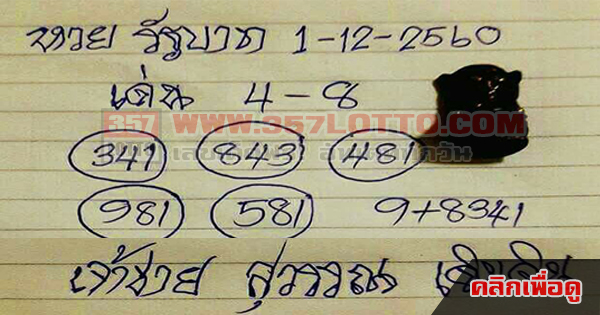 หวย รัฐบาล 1-12-2560
เด่น 4-8
357 WWW.357LOTTO.COM
341 843 481
981 581 9+8341
เจ้าชาย สุวรรณ
คลิกเพื่อดู